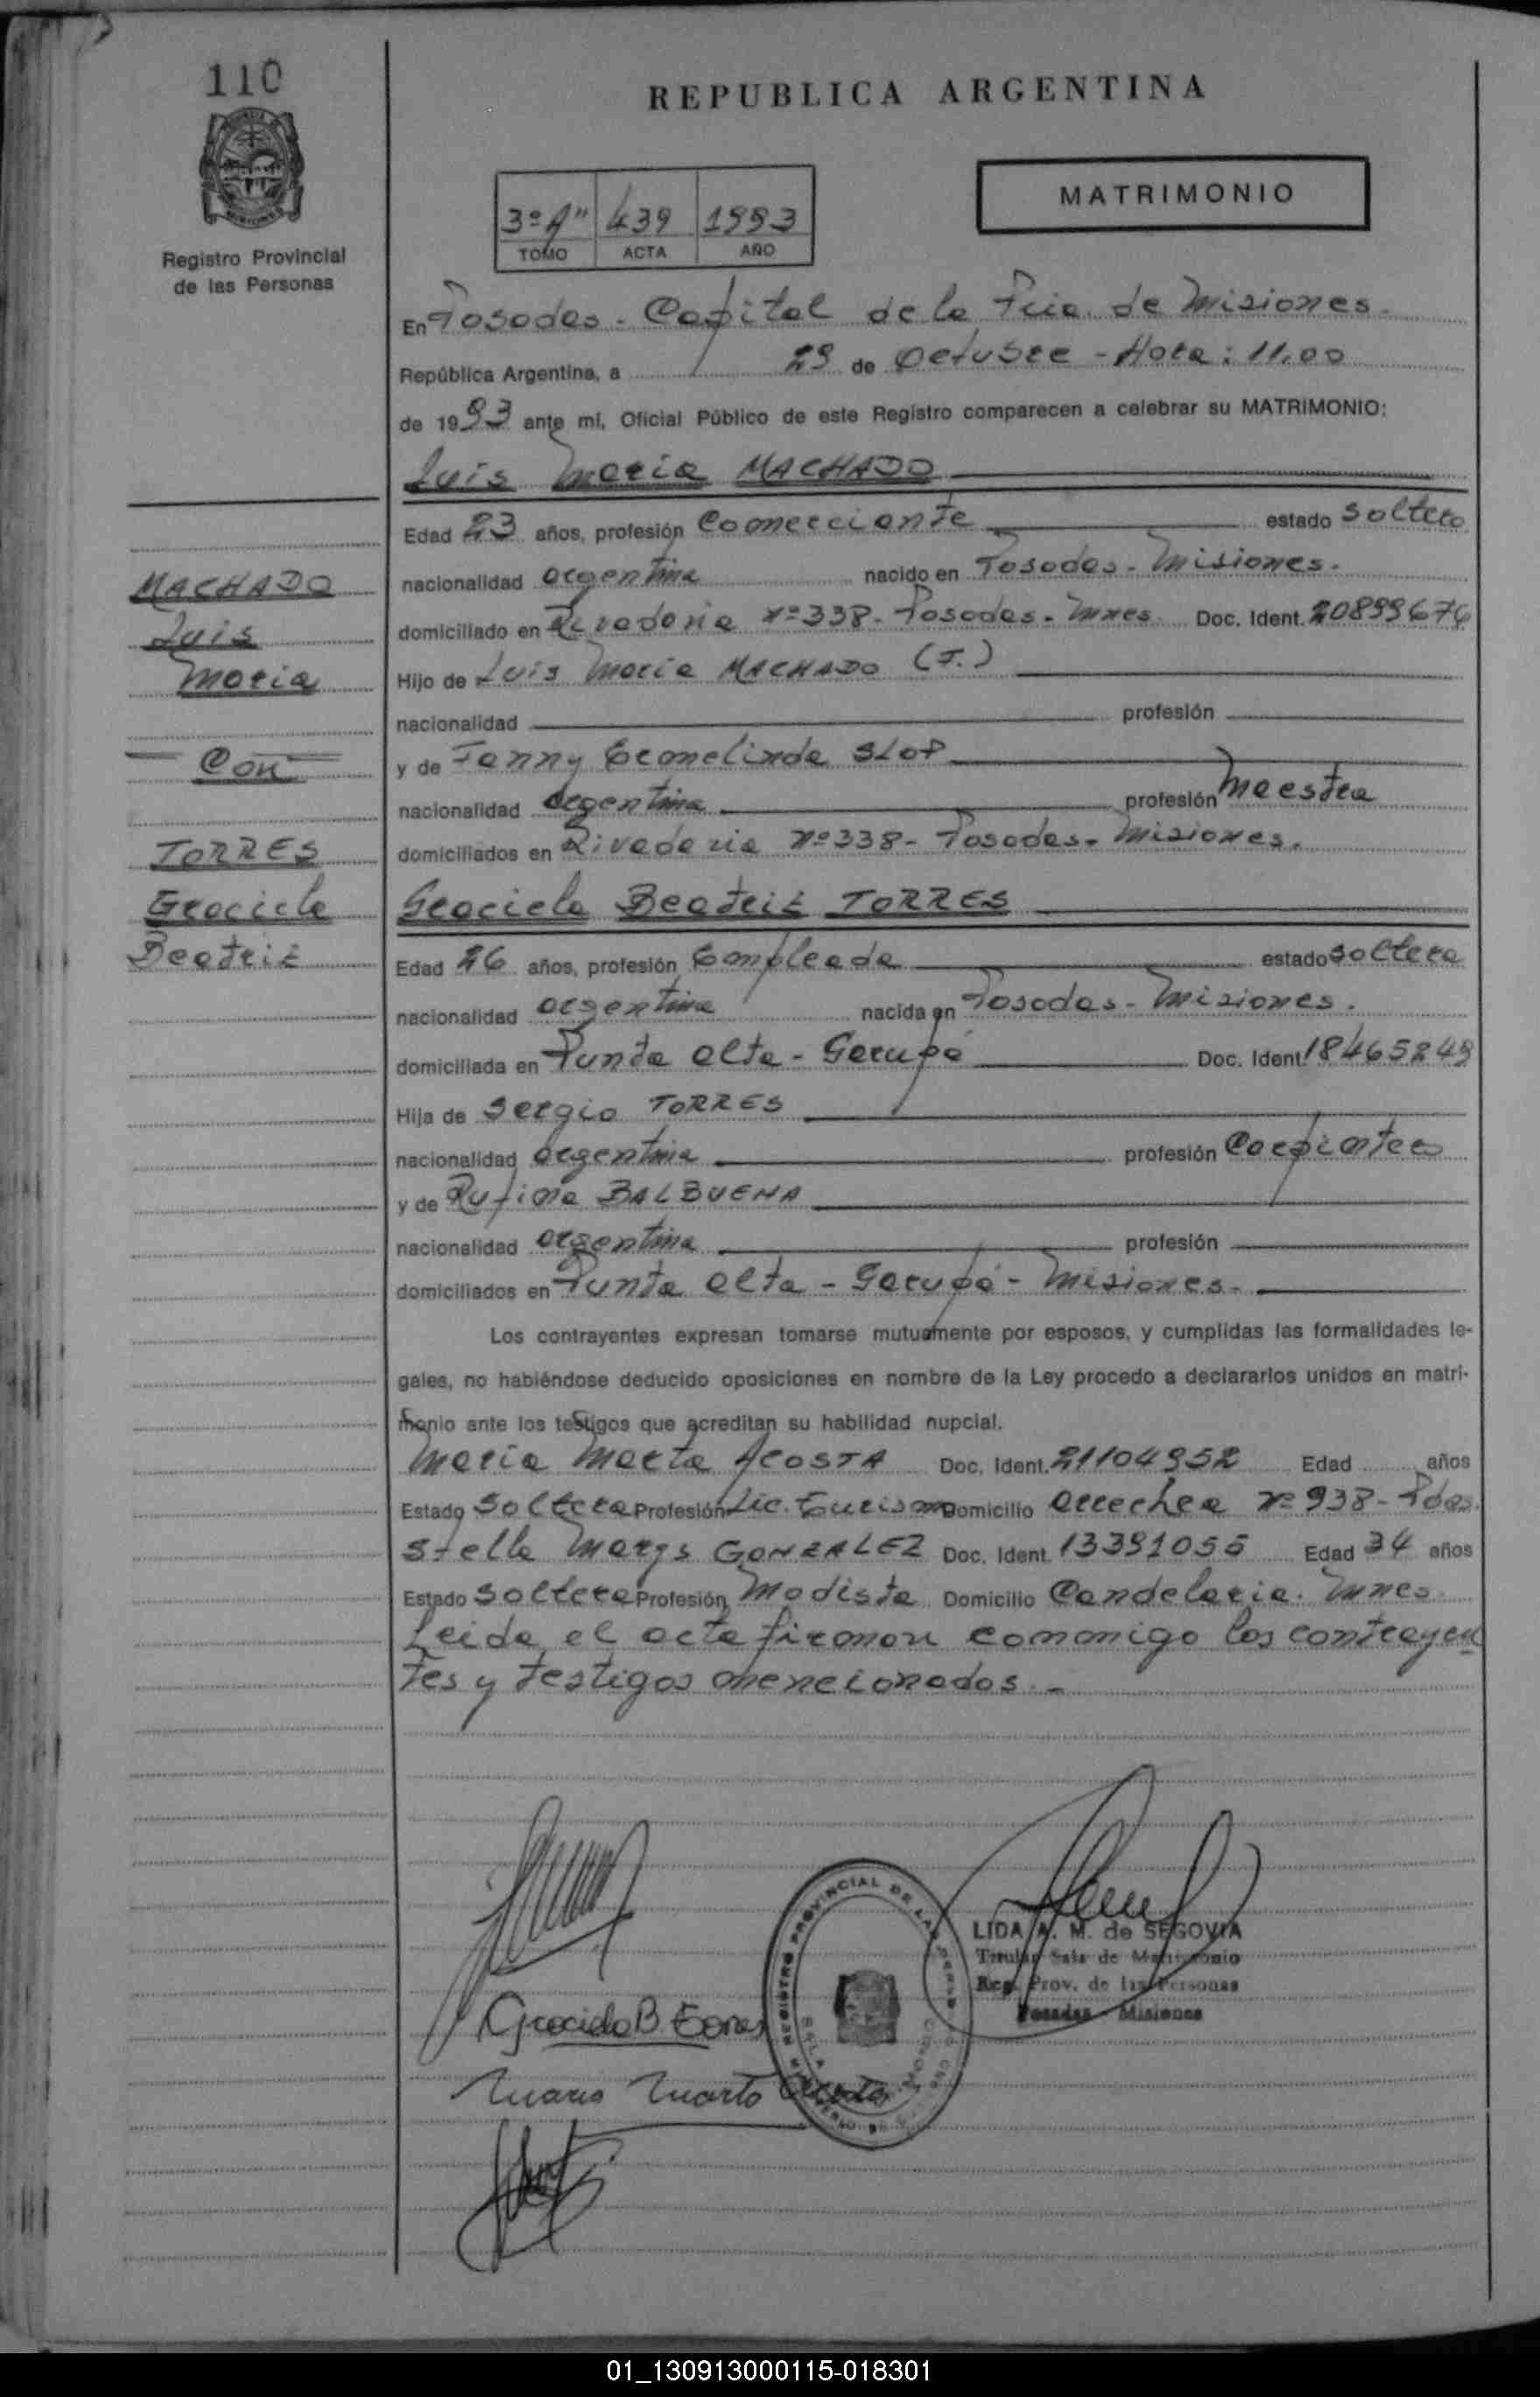 110
REPUBLICA ARGENTINA
MATRIMONIO
3º "A" 439 1993
TOMO ACTA AÑO
Registro Provincial
de las Personas
En Posadas - Capital de la Pcia. de Misiones.
República Argentina, a 29 de Octubre - Hora: 11.00
de 1993 ante mi, Oficial Público de este Registro comparecen a celebrar su MATRIMONIO:
Luis Maria MACHADO
Edad 23 años, profesión Comerciante estado soltero
MACHADO
nacionalidad argentina nacido en Posadas - Misiones.
Luis
domiciliado en Rivadavia nº 338 - Posadas - Mnes. Doc. Ident. 20899676
Maria
Hijo de Luis Maria MACHADO (F.)
nacionalidad profesión
Con
y de Fanny Ermelinda SLOP
nacionalidad argentina profesión Maestra
TORRES
domiciliados en Rivadavia nº 338 - Posadas - Misiones.
Graciela
Graciela Beatriz TORRES
Beatriz
Edad 26 años, profesión Empleada estado soltera
nacionalidad argentina nacida en Posadas - Misiones.
domiciliada en Punta alta - Garupá Doc. Ident. 18465249
Hija de Sergio TORRES
nacionalidad argentina profesión Carpintero
y de Rufina BALBUENA
nacionalidad argentina profesión
domiciliados en Punta alta - Garupá - Misiones.
Los contrayentes expresan tomarse mutuamente por esposos, y cumplidas las formalidades le-
gales, no habiéndose deducido oposiciones en nombre de la Ley procedo a declararlos unidos en matri-
monio ante los testigos que acreditan su habilidad nupcial.
Maria Marta ACOSTA Doc. Ident. 21104952 Edad años
Estado Soltera Profesión Lic. Turismo Domicilio Arrechea nº 938 - Pdas.
Stella Marys GONZALEZ Doc. Ident. 13391055 Edad 34 años
Estado soltera Profesión Modista Domicilio Candelaria. Mnes.
Leida el acta firman conmigo los contrayen
tes y testigos mencionados. -
REGISTRO PROVINCIAL DE LAS PERSONAS
LIDA A. M. de SEGOVIA
Titular Sala de Matrimonio
Reg. Prov. de las Personas
Posadas - Misiones
Graciela B. Torres
Maria Marta Acosta
01_130913000115-018301